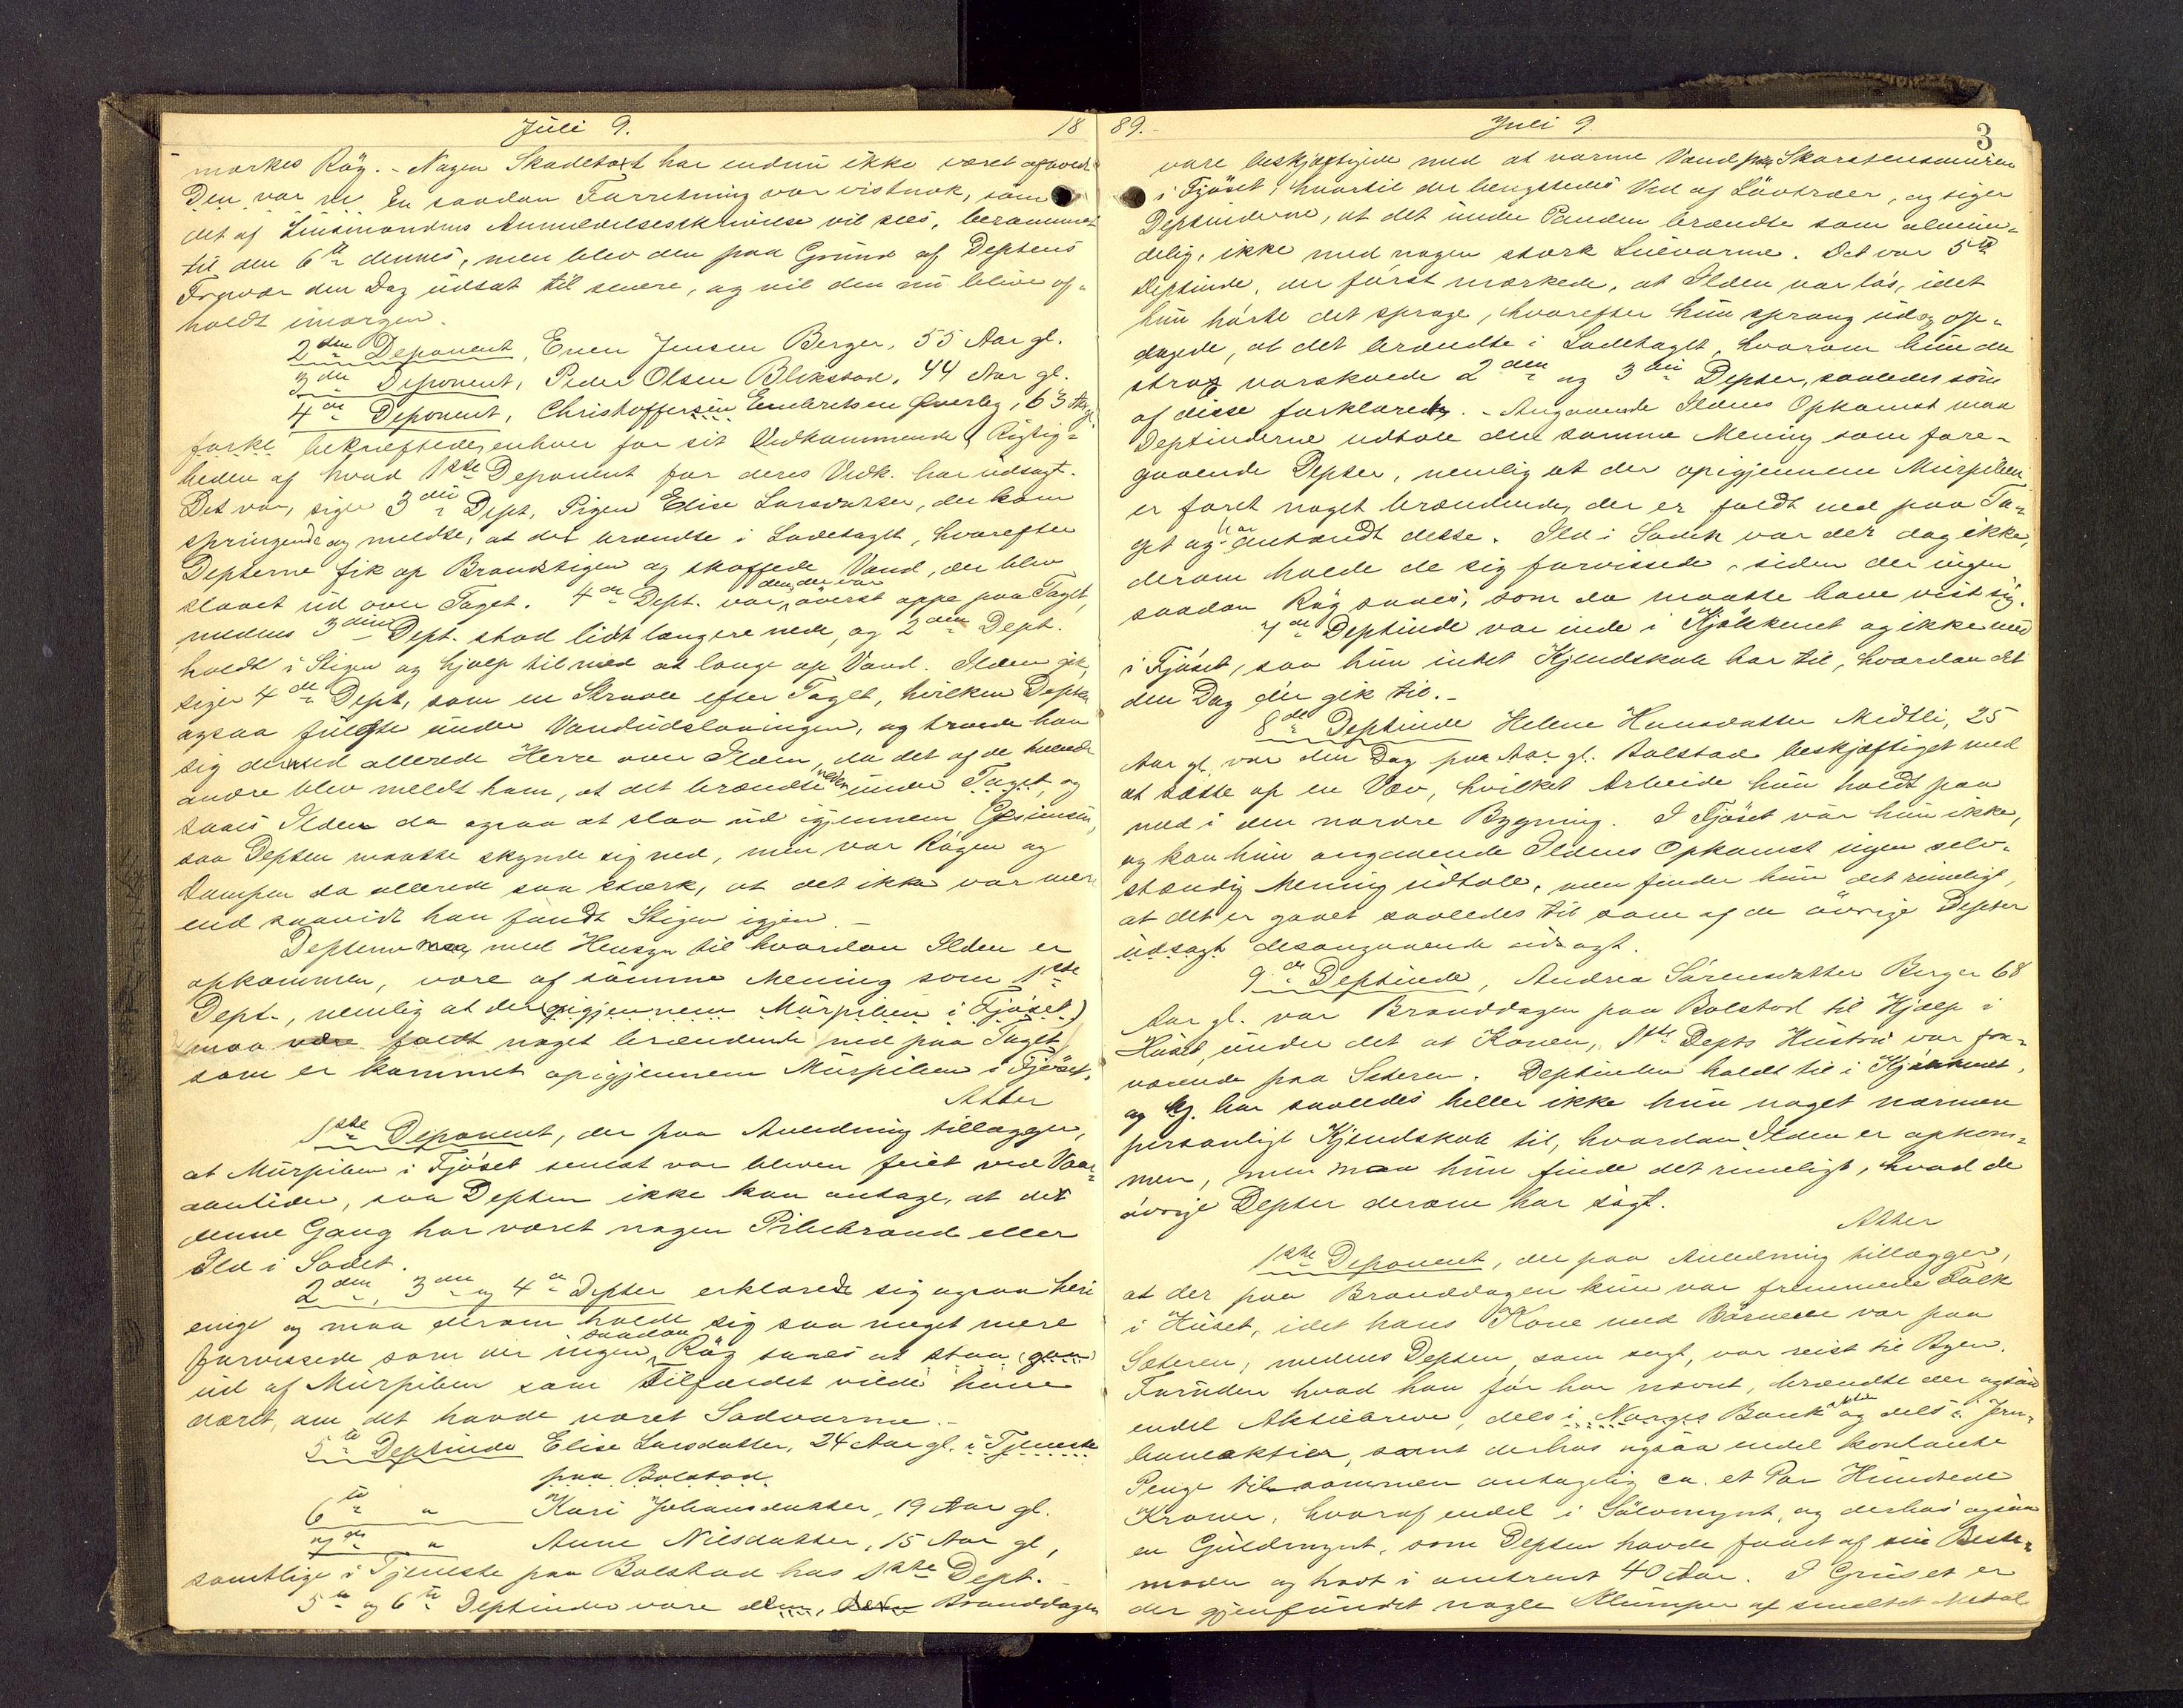 Juli 9. 18
mærkes Røg. - Nogen Skadetaxt har endnu ikke været afhold.
Den var En saadan Forretning var vistnok, som
det af Lensmandens Anmeldelsesskrivelse vil sees, berammet
til den 6te dennes, men blev den paa Grund af Deptens
Fravær den Dag udsat til senere, og vil den nu blive af-
holdt imorgen.
2den Deponent, Even Jensen Berger, 55 Aar gl.
3die Deponent, Peder Olsen Blikstad, 44 Aar gl.
4de Deponent, Christoffersen Embretsen Øverby, 63 Aar gl
forkl. bekræftede, enhver for sit Vedkommende, Rigtig-
heden af hvad 1ste Deponent for deres Vedk. har udsagt.
Det var, siger 3die Dept, Pigen Elise Larsdatter, der kom
springende og meldte, at det brændte i Ladetaget, hvorefter
Depterne fik op Brandstigen og skaffede Vand, der blev
slaaet ud over Taget. 4de Dept. var den, der var øverst oppe paa Taget,
medens 3die Dept. stod lidt længere nede, og 2den Dept.
holdt i Stigen og hjalp til med at lange op Vand. Ilden gik,
siger 4de Dept, som en Straale efter Taget, hvilken Depten
ogsaa fulgte under Vandudslaaningen, og troede han
sig derved allerede Herre over Ilden, da det af de tvende
andre blev meldt ham, at det brændte nedenunder Taget, og
saaes Ilden da ogsaa at slaa ud igjennem Gesimsen,
saa Depten maatte skynde sig ned, men var Røgen og
Dampen da allerede saa stærk, at det ikke var mere
end saavidt han fandt Stigen igjen. -
Depterne maa, med Hensyn til hvordan Ilden er
opkommen, være af samme Mening som 1ste
Dept., nemlig at der (opigjennem Murpiben i Fjøset)
maa være faldt noget brændende ned paa Taget,
som er kommet opigjennem Murpiben i Fjøset.
Atter
1ste Deponent, der paa Anledning tillægger,
at Murpiben i Fjøset senest var bleven feiet ved Vaar-
aantider, saa Depten ikke kan antage, at det
denne Gang har været nogen Pibebrand eller
Ild i Sodet.
2den, 3die og 4de Depter erklærede sig ogsaa heri
enige og maa derom holde sig saa meget mere
forvissede som der ingen saadan Røg saaes at staa (gaa)
ud af Murpiben som Tilfældet vilde have
været, om det havde været Sodvarme. -
5te Deptinde Elise Larsdatter, 24 Aar gl. i Tjeneste
paa Bolstad.
6te " Kari Johansdatter, 19 Aar gl.
og 7de " Anne Nilsdatter, 15 Aar gl,
samtlige i Tjeneste paa Bolstad hos 1ste Dept. -
5te og 6te Deptinder vare Branddagen
89. Juli 9. 3
vare beskjæftigede med at varme Vand paa Skorstensmuren
i Fjøset, hvortil der bengstedes Ved af Løvtræer, og siger
Deptinderne, at det under Panden brændte som almin-
delig, ikke med nogen stærk Luevarme. Det var 5te
Deptinde, der først mærkede, at Ilden var løs, idet
hun hørte det sprage, hvorefter hun sprang ud og op-
dagede, at det brændte i Ladetaget, hvorom hun da
strax varskuede 2den og 3die Depter, saaledes som
af disse forklaret. - Angaaende Ildens Opkomst maa
Deptinderne udtale den samme Mening som fore-
gaaende Depter, nemlig at der opigjennem Murpiben
er faret noget brændende, der er faldt ned paa Ta-
get og har antændt dette. Ild i Soden var der dog ikke,
derom holde de sig forvissede, siden der ingen
saadan Røg saaes, som da maatte have vist sig.
7de Deptinde var inde i Kjøkkenet og ikke med
i Fjøset, saa hun intet Kjendskab har til, hvordan det
den Dag der gik til. -
8de Deptinde Helene Hansdatter Midtli, 25
Aar gl. var den Dag paa Aar gl. Bolstad beskjæftiget med
at sætte op en Væv, hvilket Arbeide hun holdt paa
med i den nordre Bygning. I Fjøset var hun ikke,
og kan hun angaaende Ildens Opkomst ingen selv-
stændig Mening udtale, men finder hun det rimeligt,
at det er gaaet saaledes til som af de øvrige Depter
udsagt desangaaende udsagt.
9de Deptinde, Andrea Sørensdatter Berger 68
Aar gl. var Branddagen paa Bolstad til Hjælp i
Huset, under det at Konen, 1ste Depts Hustru var fra-
værende paa Sæteren. Deptinden holdt til i Kjøkkenet,
og har saaledes heller ikke hun noget nærmere
personligt Kjendskab til, hvordan Ilden er opkom-
men, men maa hun finde det rimeligt, hvad de
øvrige Depter derom har sagt.
Atter
1ste Deponent, der paa Anledning tillægger,
at der paa Branddagen kun var fremmede Folk
i Huset, idet hans Kone med Børnene var paa
Sæteren, medens Depten, som sagt, var reist til Byen.
Foruden hvad han før har nævnt, brændte der ogsaa
endel Aktiebreve, dels i Norges Bank og dels i Jern-
baneaktier, samt derhos ogsaa endel kontante
Penge tilsammen antagelig ca. et Par Hundrede
Kroner, hvoraf endel i Sølvmynt, og derhos ogsaa
en Guldmynt, som Depten havde faaet af sin Beste-
moder og havt i omtrent 40 Aar. I Gruset er
der gjenfundet nogle Klumper af smeltet Metal